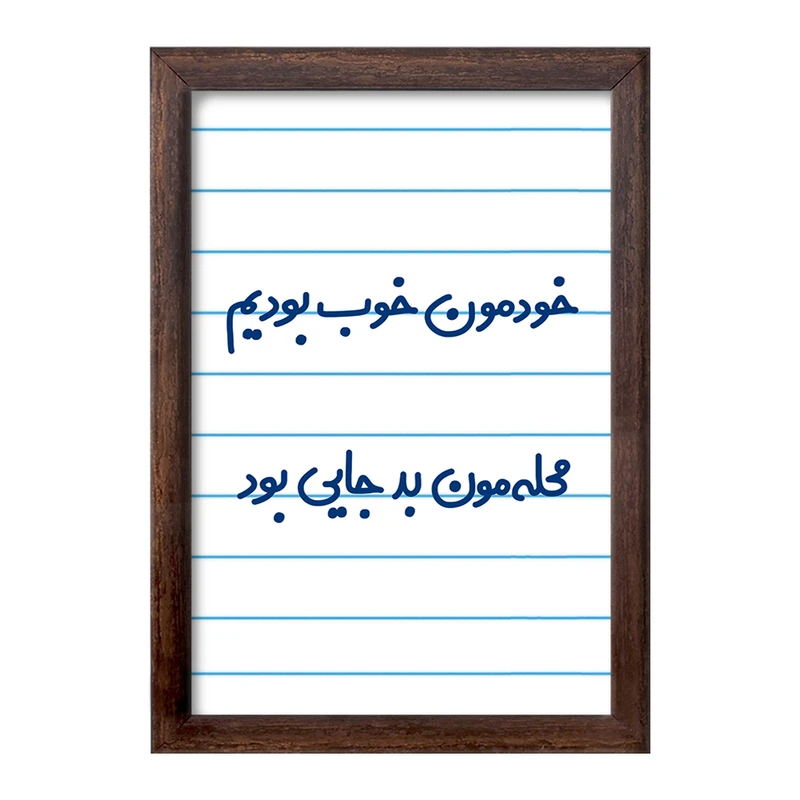 خودمون خوب بودیم
محله‌مون بد جایی بود